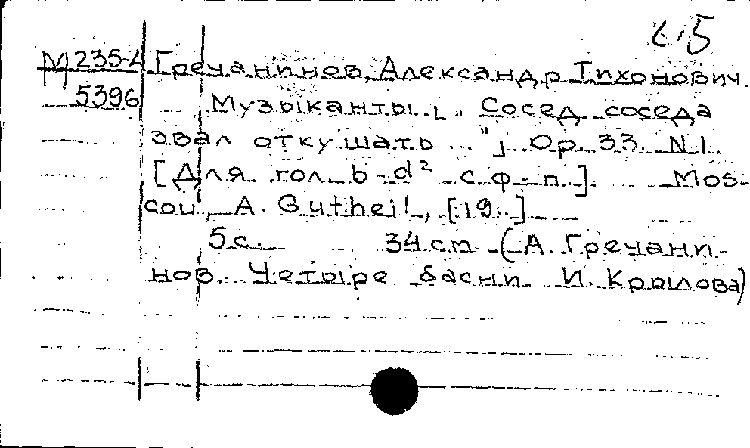 с. 5
М 235-4 Гречанинов, Александр Тихонович.
5396 Музыканты. „Сосед соседа
звал откушать ..."; Op. 33 N 1.
[Для гол. b-d² с ф-п.]. Mos-
cou, A. Gutheil, [19..]
5 с. 34 cm (А. Гречани-
нов. Четыре басни И. Крылова)